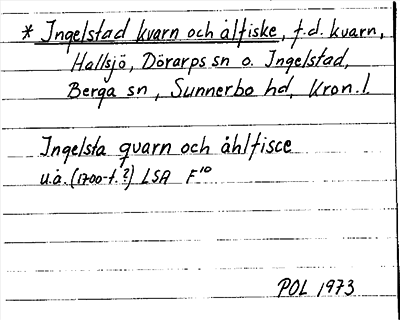 * Ingelstad kvarn och ålfiske, f.d. kvarn,
Hallsjö, Dörarps sn o. Ingelstad,
Berga sn, Sunnerbo hd, Kron. l.
Ingelsta qvarn och åhlfisce
u.å. (1700-t.?) LSA F10
POL 1973